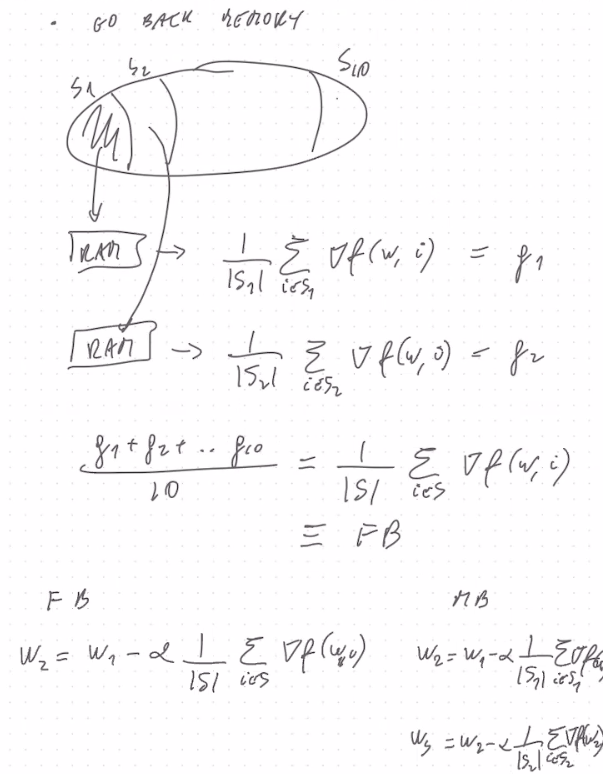 • GO BACK MEMORY
S1 S2 S10
RAM → 1/|S1| Σ i∈S1 ∇f(w, i) = g1
RAM → 1/|S2| Σ i∈S2 ∇f(w, i) = g2
g1 + g2 + .. g10 / 10 = 1/|S| Σ i∈S ∇f(w, i)
≡ FB
FB MB
w2 = w1 - α 1/|S| Σ i∈S ∇f(w,i) w2 = w1 - α 1/|S1| Σ i∈S1 ∇f(w
w3 = w2 - α 1/|S2| Σ i∈S2 ∇f(w2)